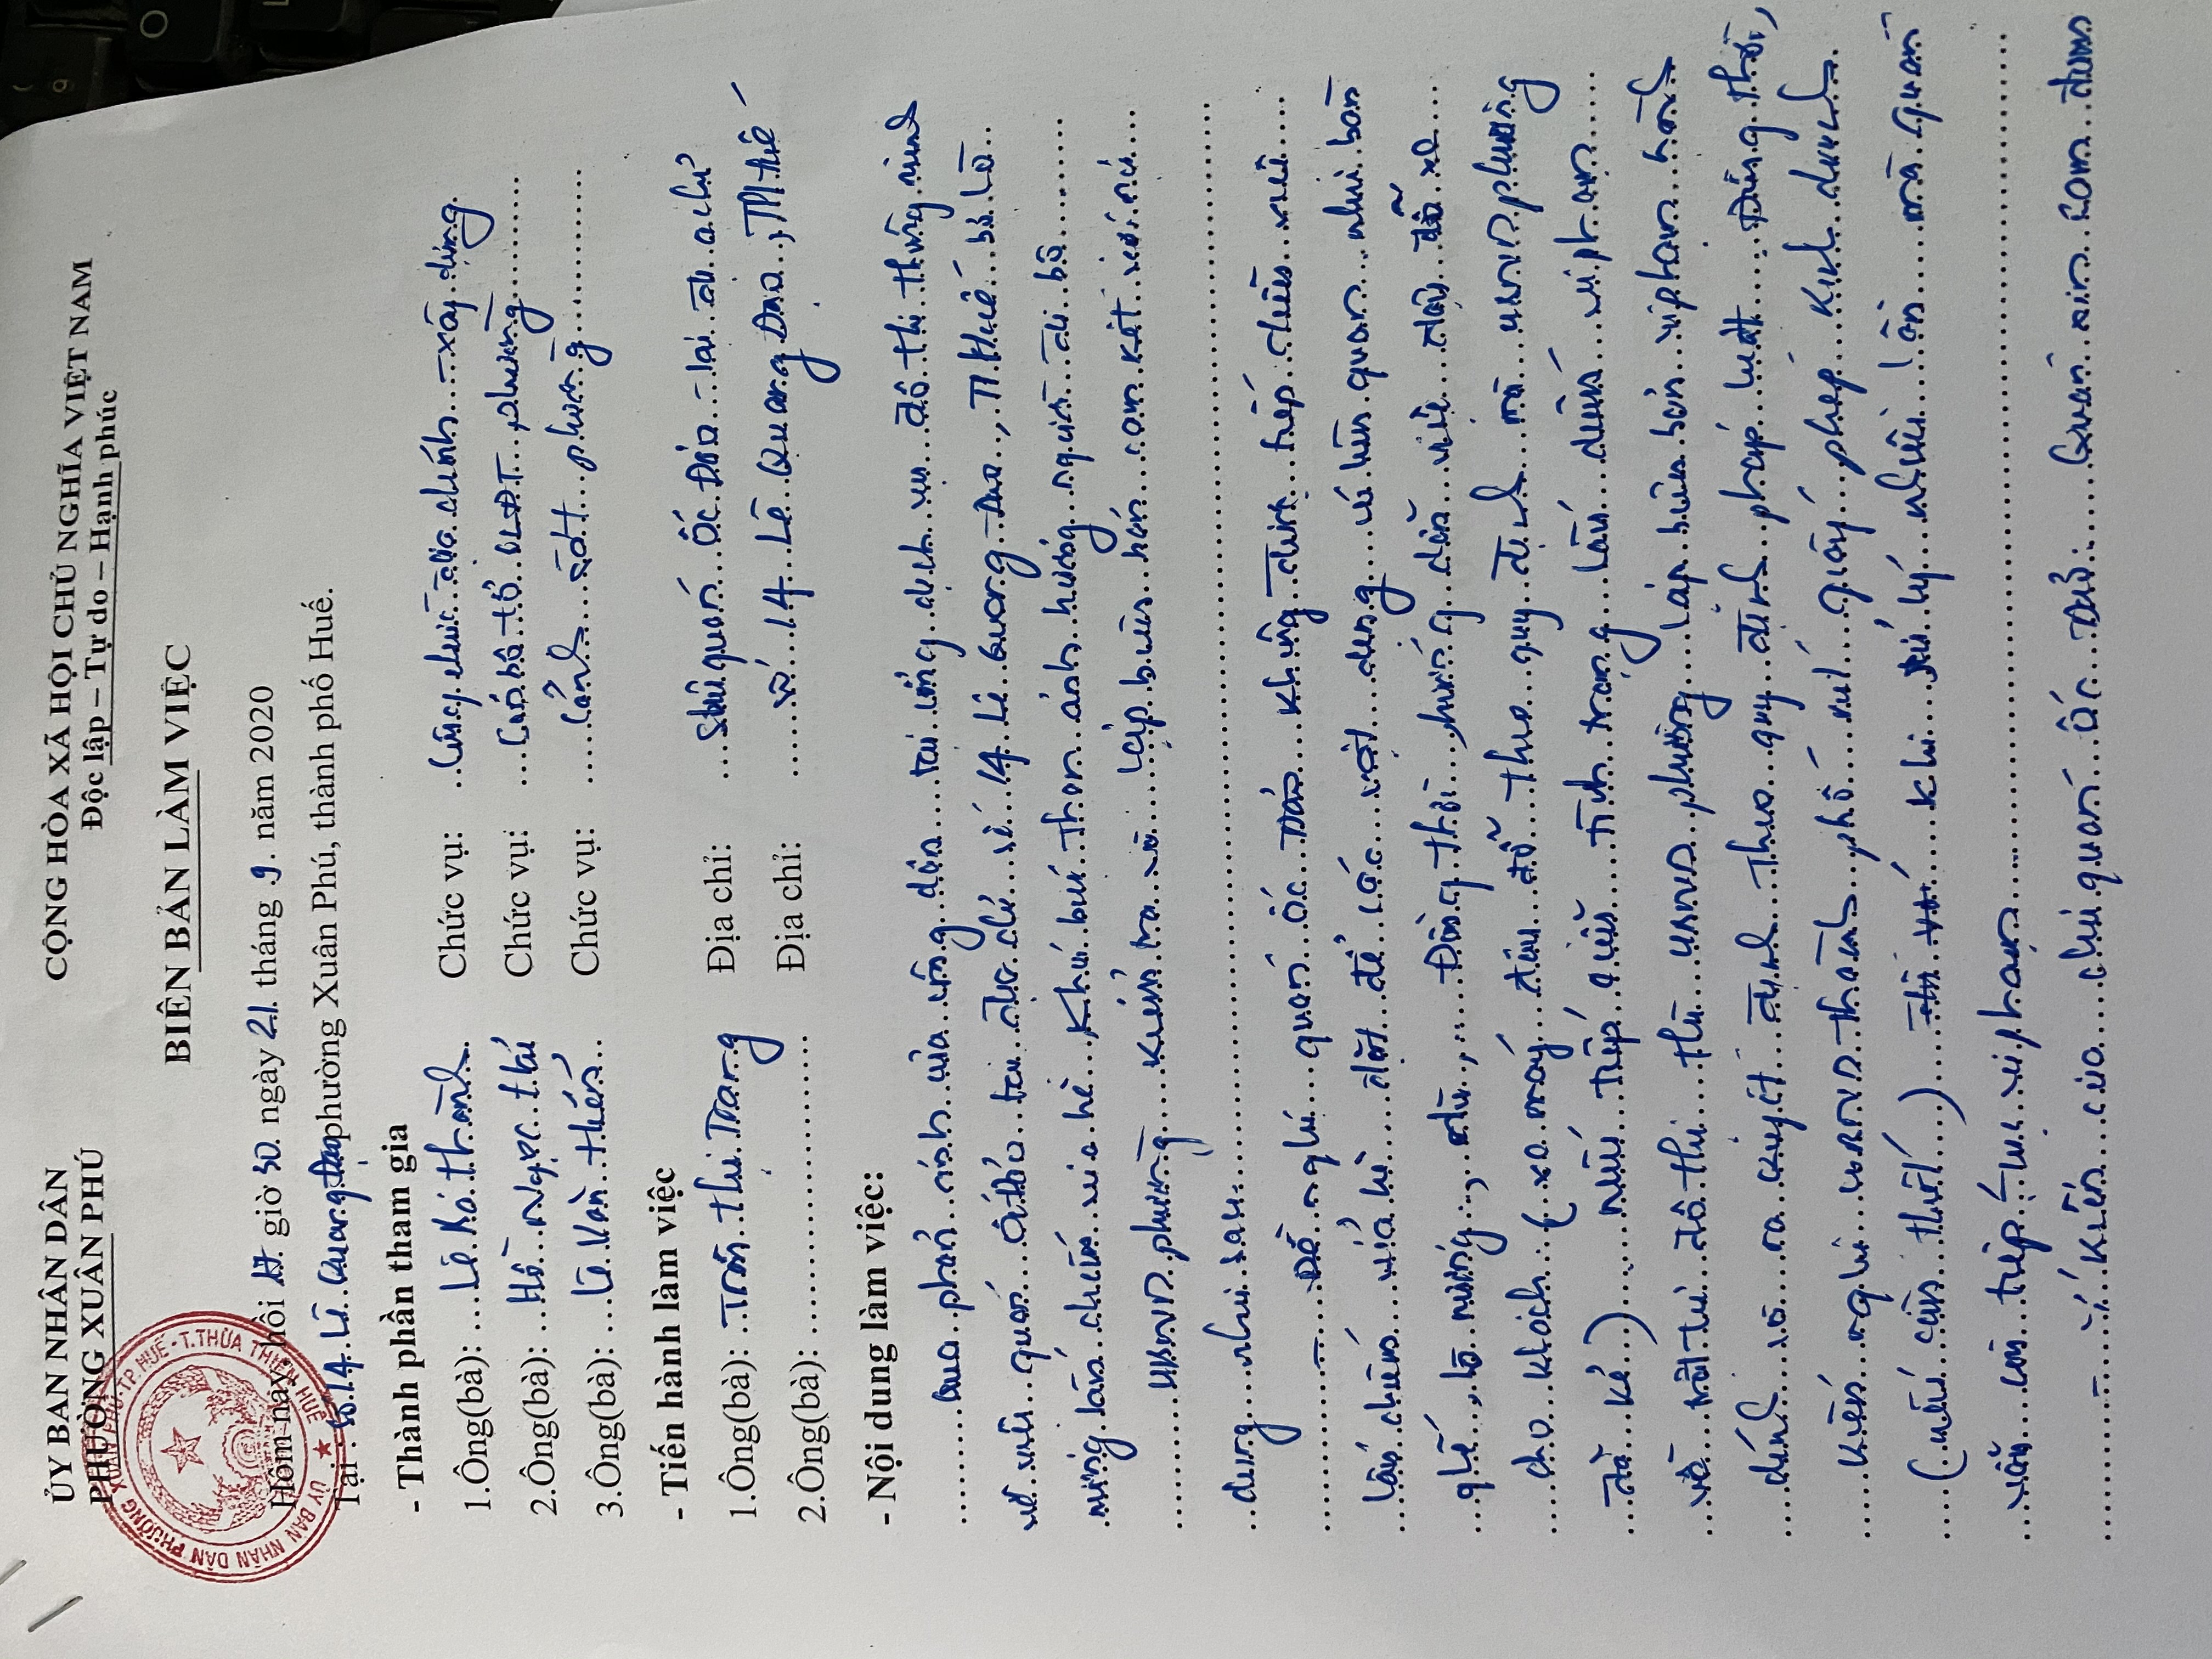 ỦY BAN NHÂN DÂN
PHƯỜNG XUÂN PHÚ
CỘNG HÒA XÃ HỘI CHỦ NGHĨA VIỆT NAM
Độc lập – Tự do – Hạnh phúc
BIÊN BẢN LÀM VIỆC
Hôm nay, hồi giờ 30 ngày 21 tháng 9 năm 2020
Tại: Số 14 Lê Quang Đạo phường Xuân Phú, thành phố Huế.
- Thành phần tham gia
1.Ông(bà): Lê Bá Thành Chức vụ: Công chức địa chính - xây dựng
2.Ông(bà): Hồ Ngọc Thú Chức vụ: Cán bộ tổ QLĐT phường
3.Ông(bà): Lê Văn Thến Chức vụ: Cảnh sát phường
- Tiến hành làm việc
1.Ông(bà): Trần Thị Trang Địa chỉ: Chủ quán Ốc Đảo - tại địa chỉ
2.Ông(bà): Địa chỉ: số 14 Lê Quang Đạo, TP Huế
- Nội dung làm việc:
Qua phản ánh của công dân tại cổng dịch vụ đô thị thông minh
về việc quán Ốc Đảo tại địa chỉ số 14 Lê Quang Đạo, TP Huế bị lò
nướng lấn chiếm vỉa hè khói bụi than ảnh hưởng người đi bộ
UBND phường kiểm tra và lập biên bản cam kết với nội
dung như sau:
- Đề nghị quán ốc Đảo không được tiếp diễn việc
lấn chiếm vỉa hè đặt để các vật dụng có liên quan như bàn
ghế, lò nướng, dù, Đồng thời hướng dẫn việc đậu đỗ xe
cho khách (xe máy) đậu đỗ theo quy định mà UBND phường
đã kẻ) nếu tiếp diễn tình trạng lấn chiếm vi phạm
về trật tự đô thị thì UBND phường lập biên bản vi phạm hành
chính và ra quyết định theo quy định pháp luật. Đồng thời,
kiến nghị UBND thành phố rút giấy phép kinh doanh
(nếu cần thiết) khi xử lý nhiều lần mà quán
vẫn còn tiếp tục vi phạm
- Ý kiến của chủ quán Ốc Đảo: Quán xin cam đoan